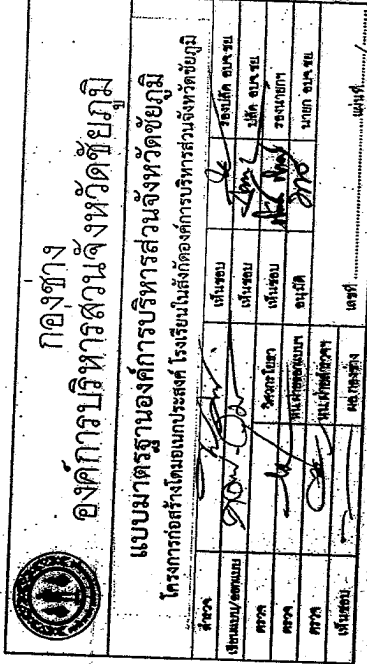 กองช่าง
องค์การบริหารส่วนจังหวัดชัยภูมิ
แบบมาตรฐานองค์การบริหารส่วนจังหวัดชัยภูมิ
โครงการก่อสร้างโดมอเนกประสงค์ โรงเรียนในสังกัดองค์การบริหารส่วนจังหวัดชัยภูมิ
สำรวจ เห็นชอบ รองปลัด อบจ.ชย
เขียนแบบ/ออกแบบ เห็นชอบ ปลัด อบจ.ชย
ตรวจ วิศวกรโยธา เห็นชอบ รองนายกฯ
ตรวจ หน.ฝ่ายออกแบบฯ อนุมัติ นายก อบจ.ชย
ตรวจ หน.ฝ่าย
เห็นชอบ ผอ.กองช่าง เลขที่ แผ่นที่ /